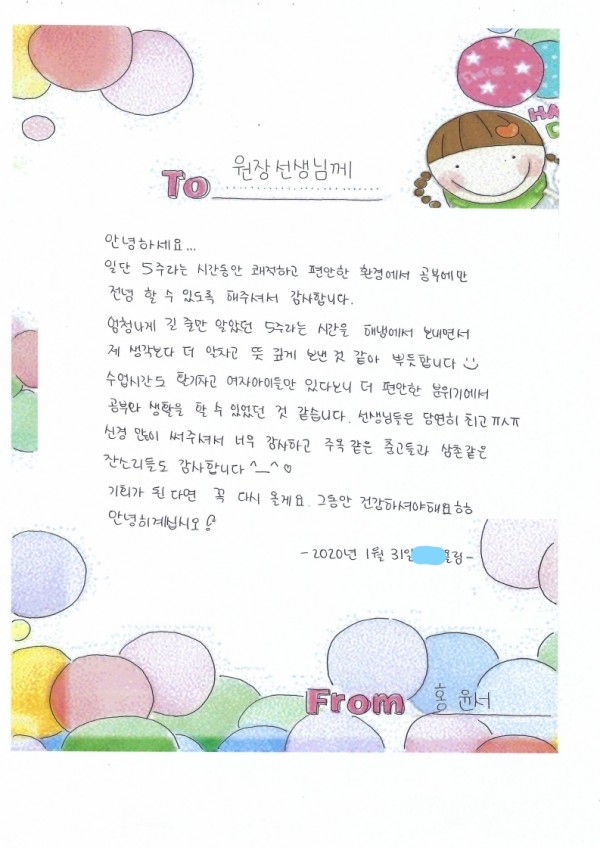 HA
To 원장선생님께
안녕하세요...
일단 5주라는 시간동안 쾌적하고 편안한 환경에서 공부에만
전념 할 수 있도록 해주셔서 감사합니다.
엄청나게 긴 줄만 알았던 5주라는 시간을 해냄에서 보내면서
제 생각보다 더 알차고 뜻 깊게 보낸 것 같아 뿌듯합니다
수업시간도 활기차고 여자아이들만 있다보니 더 편안한 분위기에서
공부와 생활을 할 수 있었던 것 같습니다. 선생님들은 당연히 최고 ㅠㅅㅠ
신경 많이 써주셔서 너무 감사하고 주옥 같은 충고들과 삼촌같은
잔소리들도 감사합니다 ^_^ ♡
기회가 된다면 꼭 다시 올게요. 그동안 건강하셔야해요ㅎㅎ
안녕히계십시오
-2020년 1월 31일 올림-
From 홍윤서